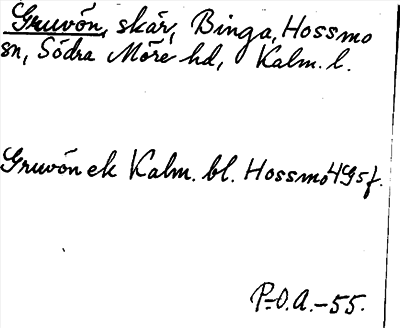 Gruvön, skär, Binga, Hossmo
sn, Södra Möre hd, Kalm. l.
Gruvön ek Kalm. bl. Hossmo 4G5f.
P-O.A.-55.